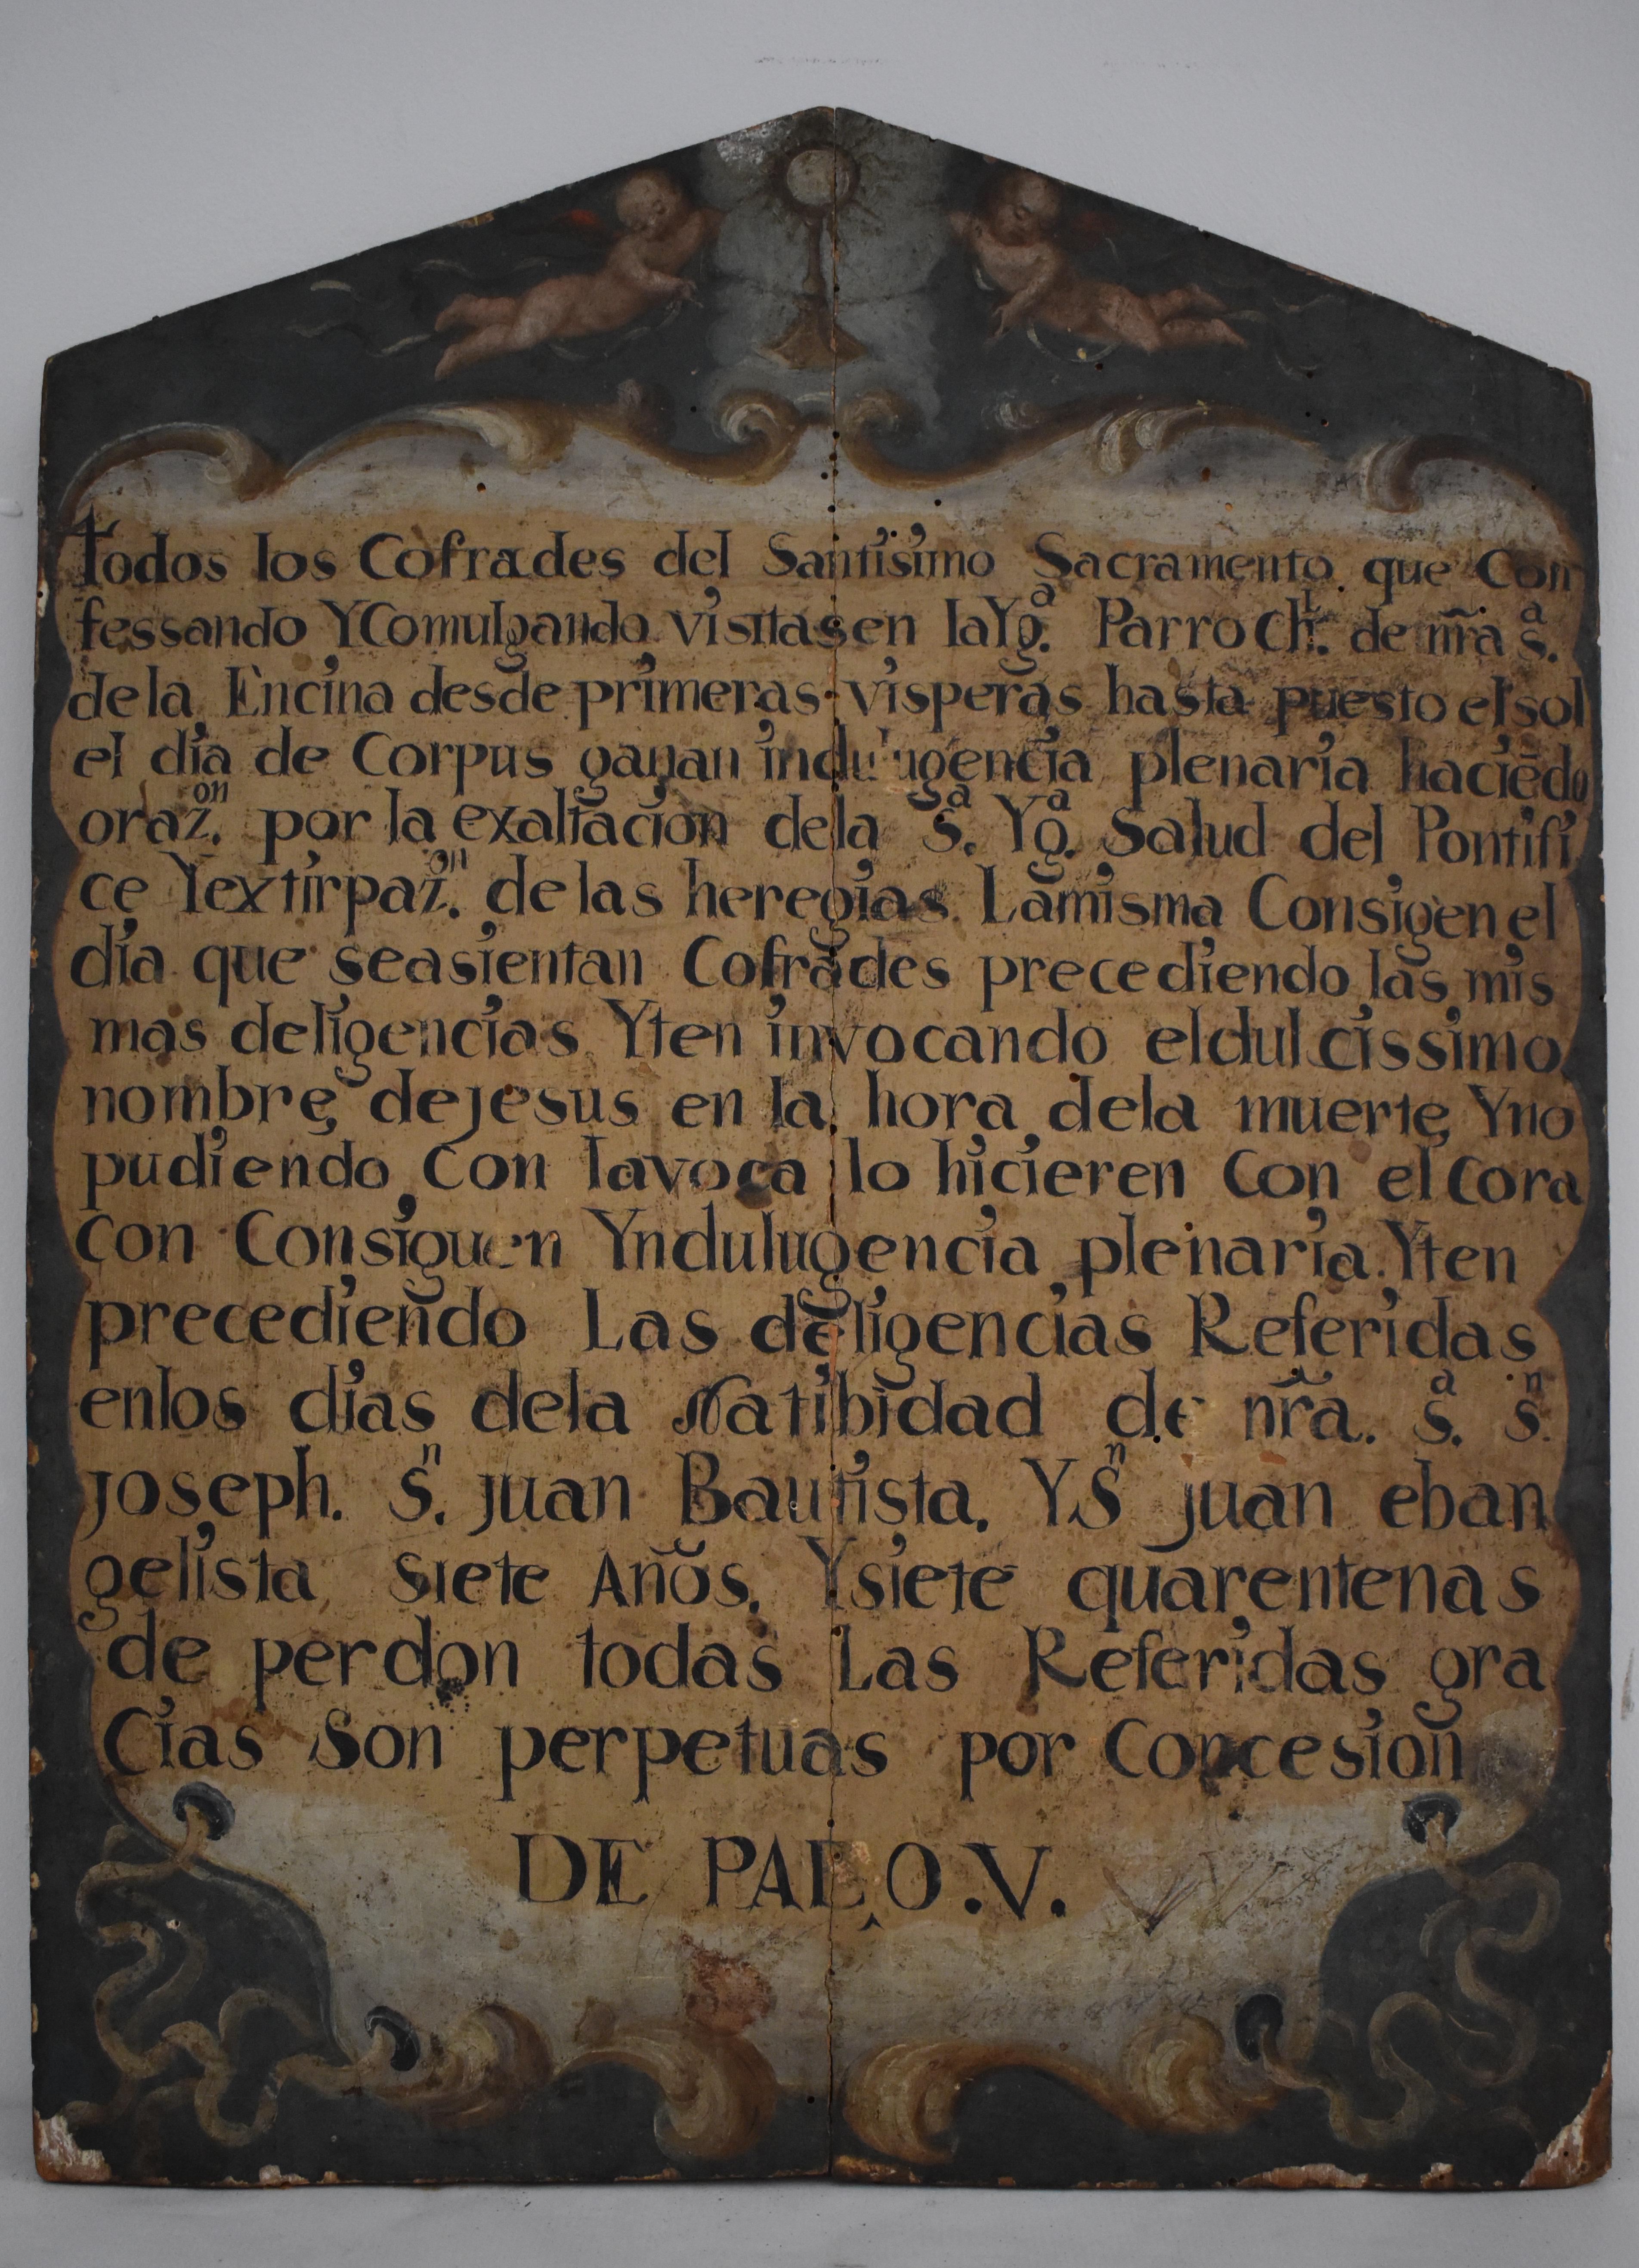 todos los Cofrades del Santisimo Sacramento que Con
fessando YComulgando visitasen laYgª. Parrochˡ. de nr̃a sª.
dela Encina desde primeras visperas hasta puesto el sol
el dia de Corpus ganan indulugencia plenaria haciēdo
orazᵒⁿ. por la exaltacion dela Sª. Ygª. Salud del Pontifi
ce Yextirpazᵒⁿ. de las heregias Lamisma Consigen el
dia que seasientan Cofrades precediendo las mis
mas deligencias Yten invocando eldulcissimo
nombre dejesus en la hora dela muerte Yno
pudiendo Con lavoca lo hicieren Con el Cora
con Consiguen Yndulugencia plenaria. Yten
precediendo Las deligencias Referidas
enlos dias dela Natibidad de nr̃a. sª. sⁿ.
joseph. Sⁿ. juan Bautista. Y.Sⁿ juan eban
gelista siete Años. Ysiete quarentenas
de perdon todas Las Referidas gra
Cias Son perpetuas por Concesion
DE PALO.V.